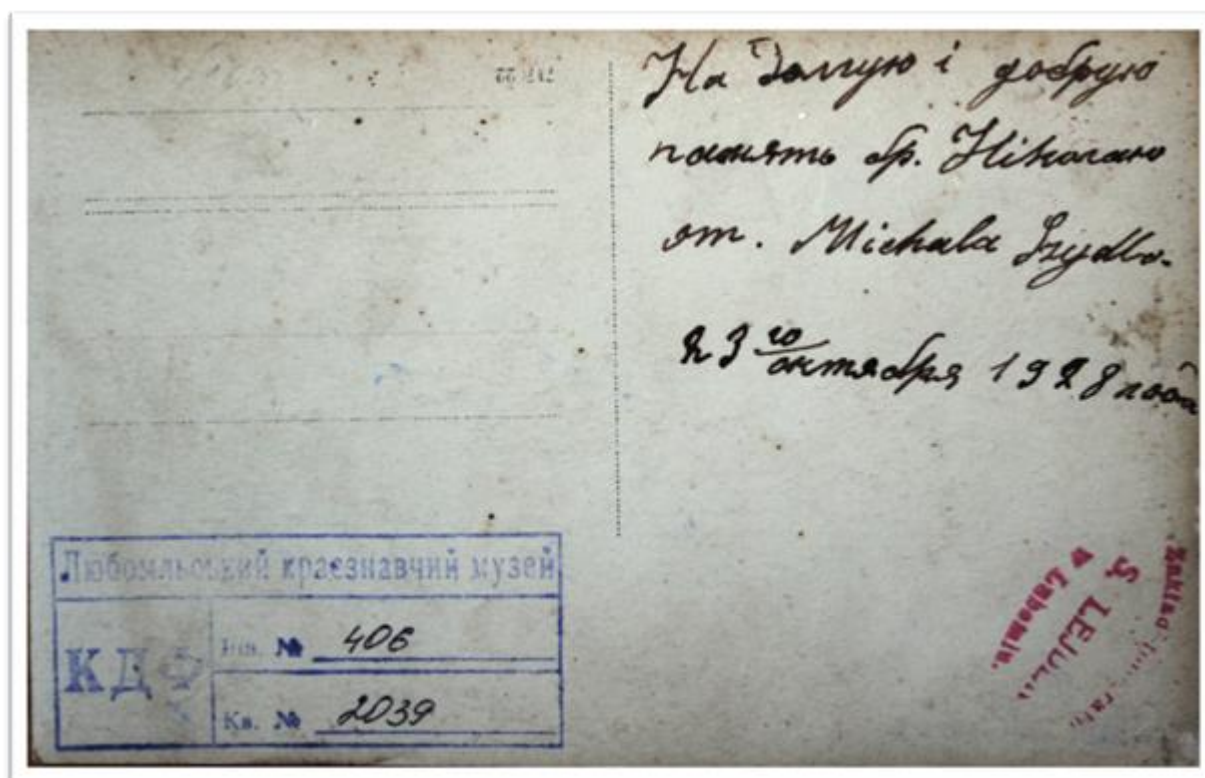 На долгую і добрую
память бр. Ніколаю
от. Michala Szydło.
23 го октября 1928 года
Любомльський краєзнавчий музей
КДФ
Інв. № 406
Кв. № 2039
Zakład
S. LEJDER
w Lubomlu.